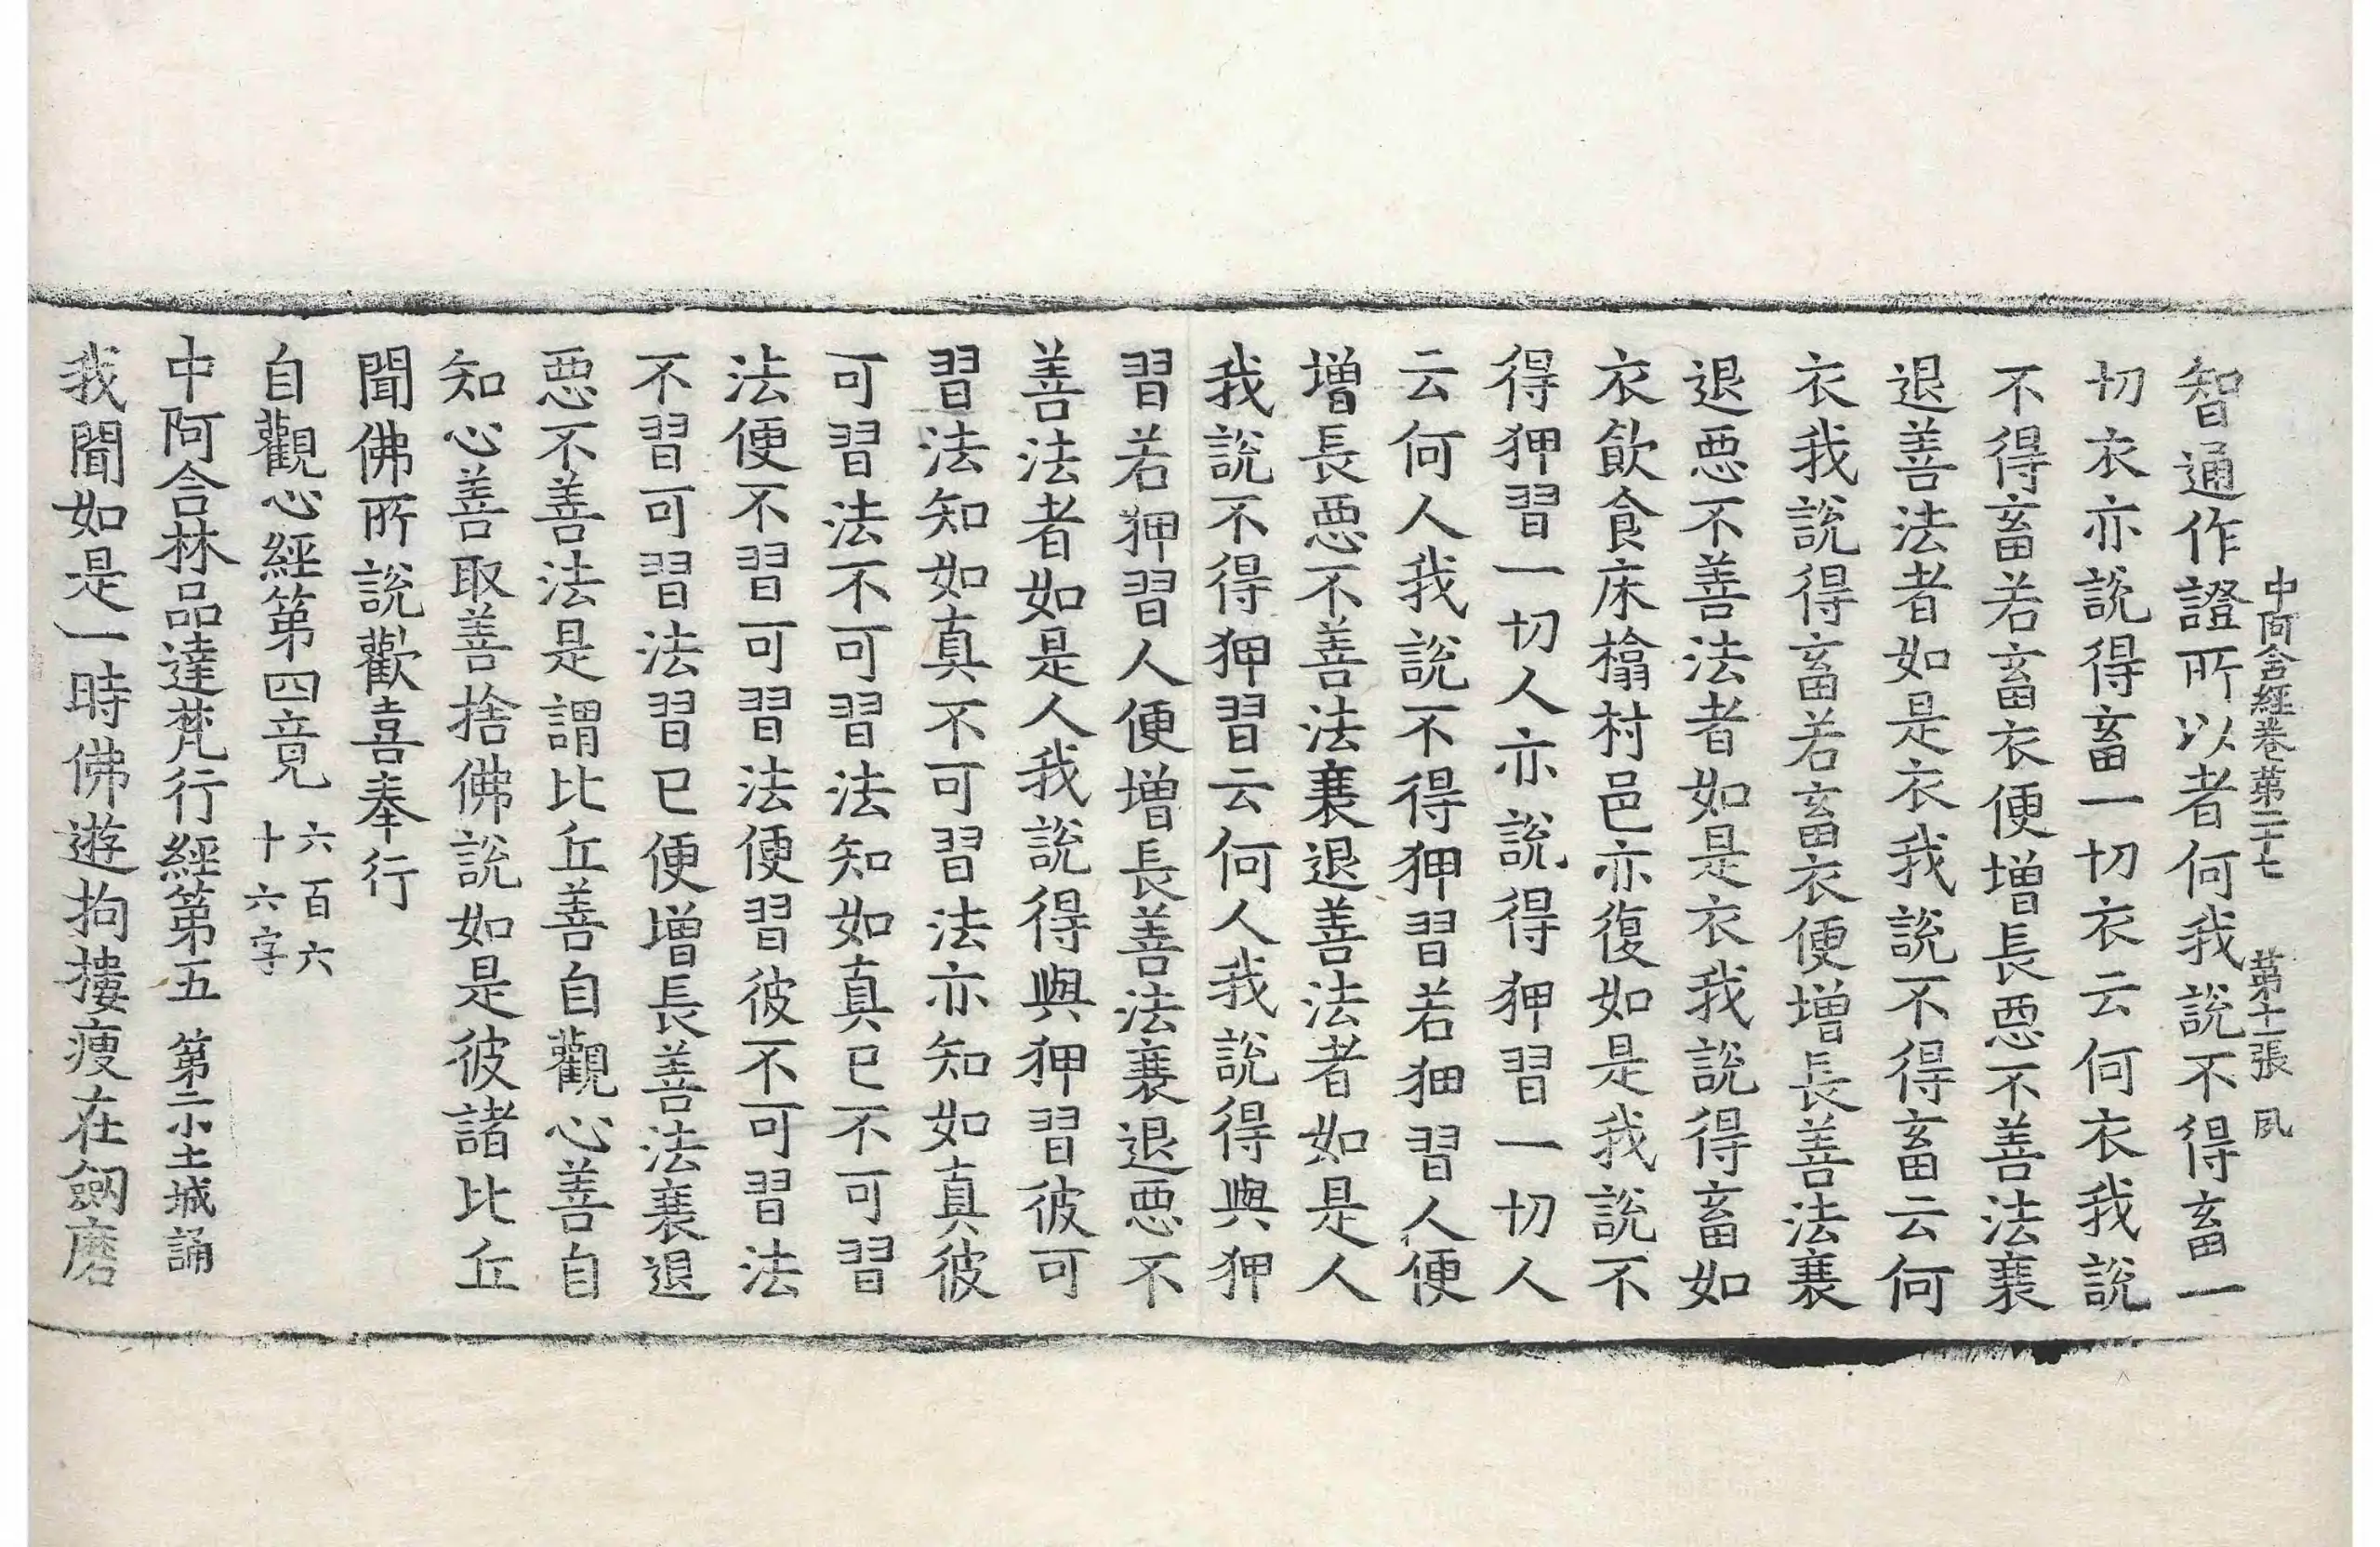 中阿含經卷第二十七 第十一張 夙
智通作證所以者何我說不得畜一
切衣亦說得畜一切衣云何衣我說
不得畜若畜衣便增長惡不善法衰
退善法者如是衣我說不得畜云何
衣我說得畜若畜衣便增長善法衰
退惡不善法者如是衣我說得畜如
衣飲食床榻村邑亦復如是我說不
得狎習一切人亦說得狎習一切人
云何人我說不得狎習若狎習人便
增長惡不善法衰退善法者如是人
我說不得狎習云何人我說得與狎
習若狎習人便增長善法衰退惡不
善法者如是人我說得與狎習彼可
習法知如真不可習法亦知如真彼
可習法不可習法知如真已不可習
法便不習可習法便習彼不可習法
不習可習法習已便增長善法衰退
惡不善法是謂比丘善自觀心善自
知心善取善捨佛說如是彼諸比丘
聞佛所說歡喜奉行
自觀心經第四竟 六百六十六字
中阿含林品達梵行經第五 第二小土城誦
我聞如是一時佛遊拘摟瘦在劒磨